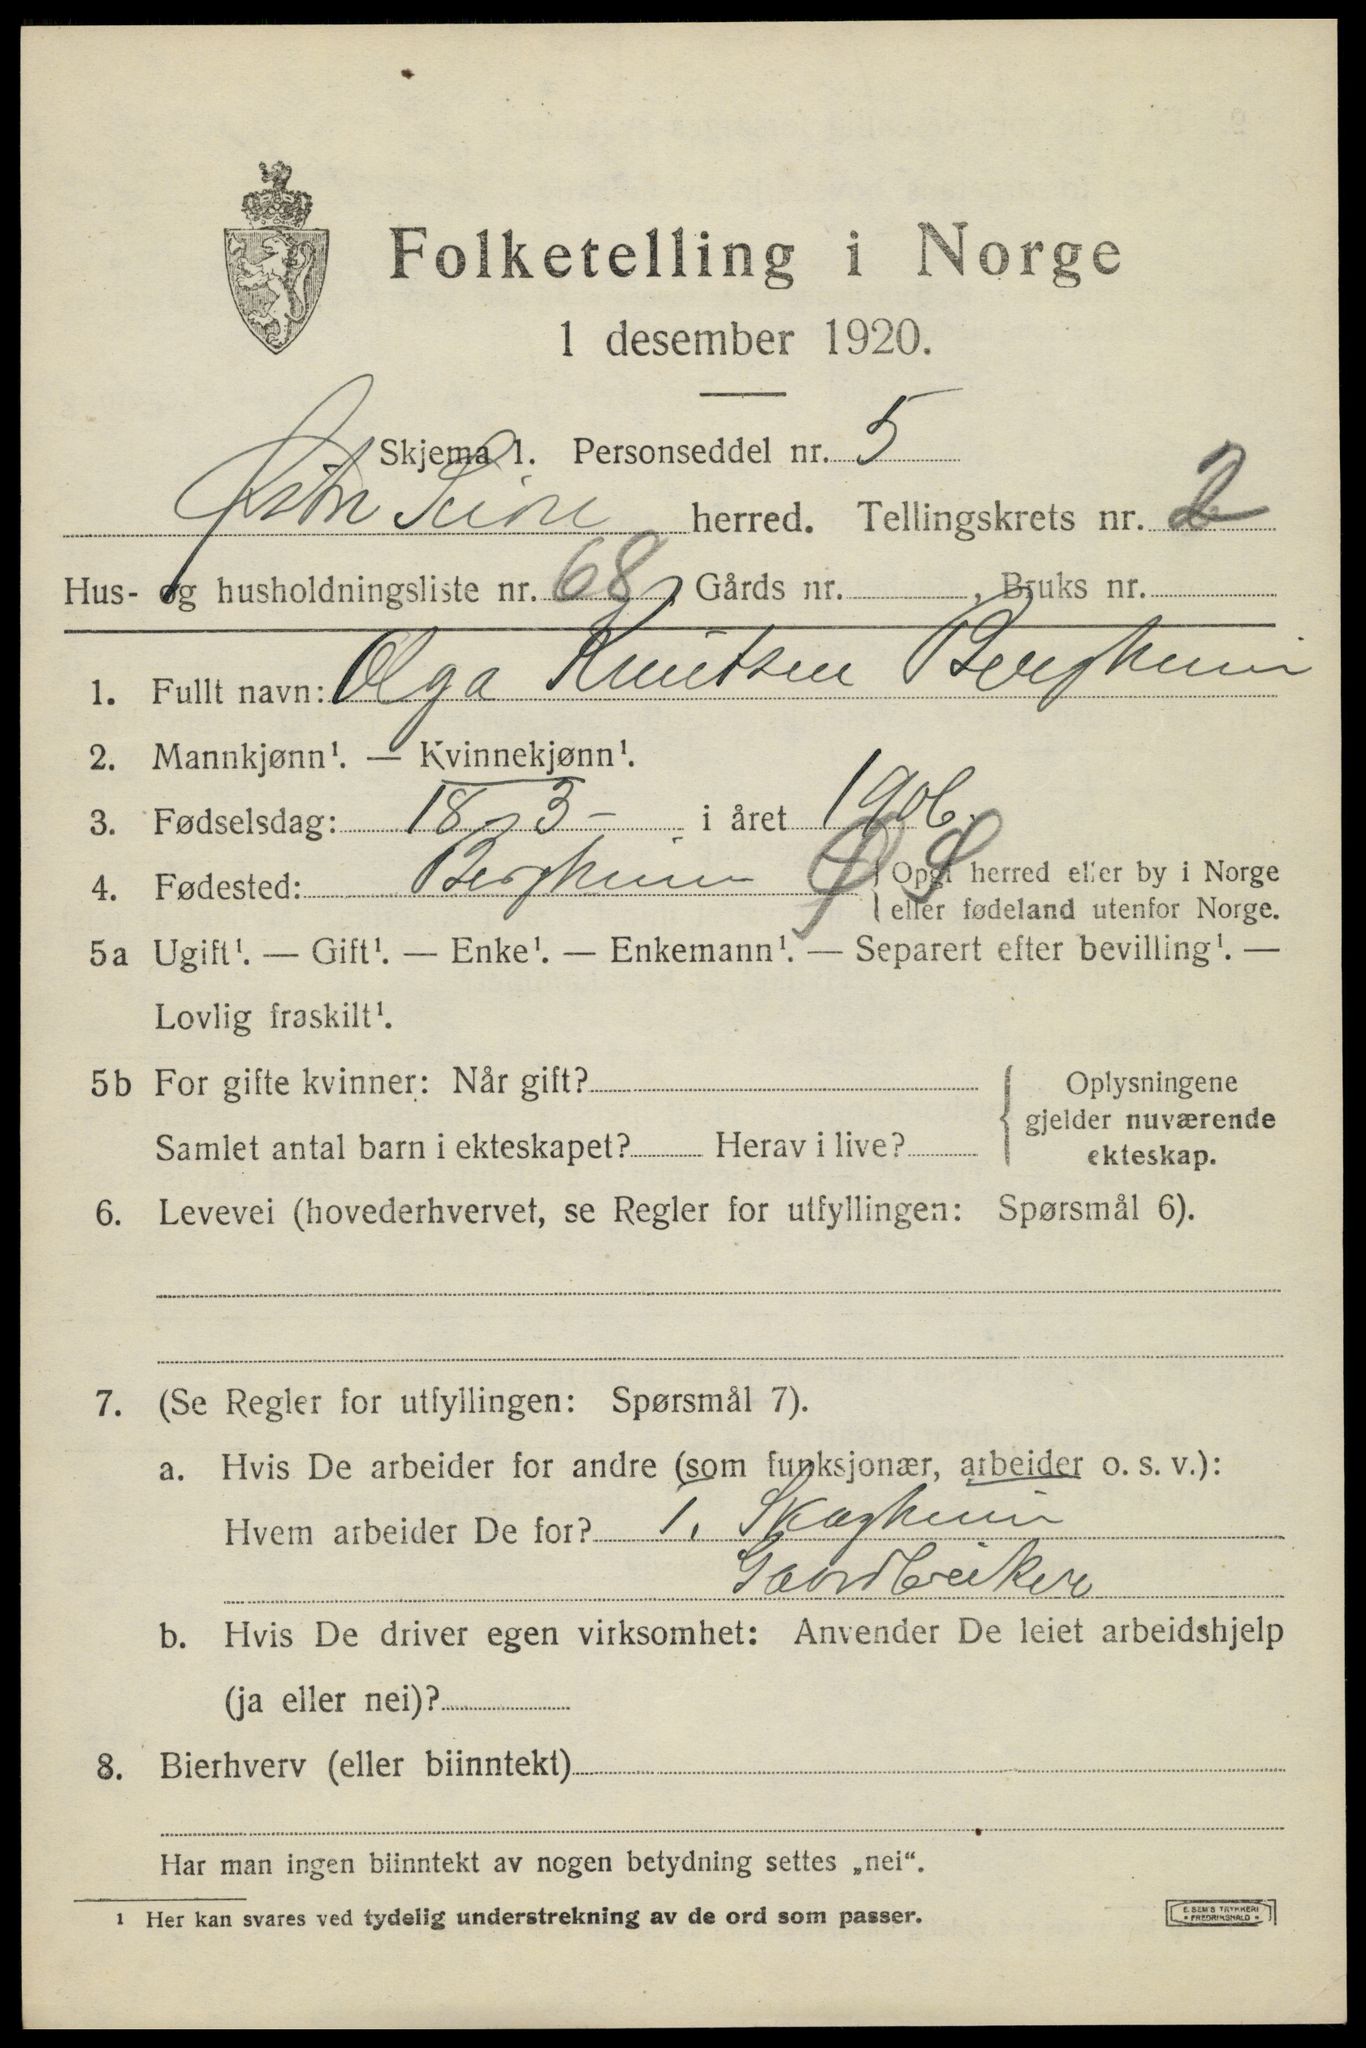 Folketelling i Norge
1 desember 1920.
Skjema 1. Personseddel nr. 5
herred. Tellingskrets nr. 2
Hus- og husholdningsliste nr. 68, Gårds nr. , Bruks nr.
1. Fullt navn: Olga Knutsen Bergheim
2. Mannkjønn¹. — Kvinnekjønn¹.
3. Fødselsdag: 18 - 3 - i året 1906.
4. Fødested: Bergheim ØS { Opgi herred eller by i Norge
eller fødeland utenfor Norge.
5a Ugift¹. — Gift¹. — Enke¹. — Enkemann¹. — Separert efter bevilling¹. —
Lovlig fraskilt¹.
5b For gifte kvinner: Når gift? { Oplysningene
gjelder nuværende
Samlet antal barn i ekteskapet? Herav i live? ekteskap.
6. Levevei (hovederhvervet, se Regler for utfyllingen: Spørsmål 6).
7. (Se Regler for utfyllingen: Spørsmål 7).
a. Hvis De arbeider for andre (som funksjonær, arbeider o. s. v.):
Hvem arbeider De for? 1. Skogheim
b. Hvis De driver egen virksomhet: Anvender De leiet arbeidshjelp
(ja eller nei)?
8. Bierhverv (eller biinntekt)
Har man ingen biinntekt av nogen betydning settes „nei“.
1 Her kan svares ved tydelig understrekning av de ord som passer.
E. SEM'S TRYKKERI
• FREDRIKSHALD •